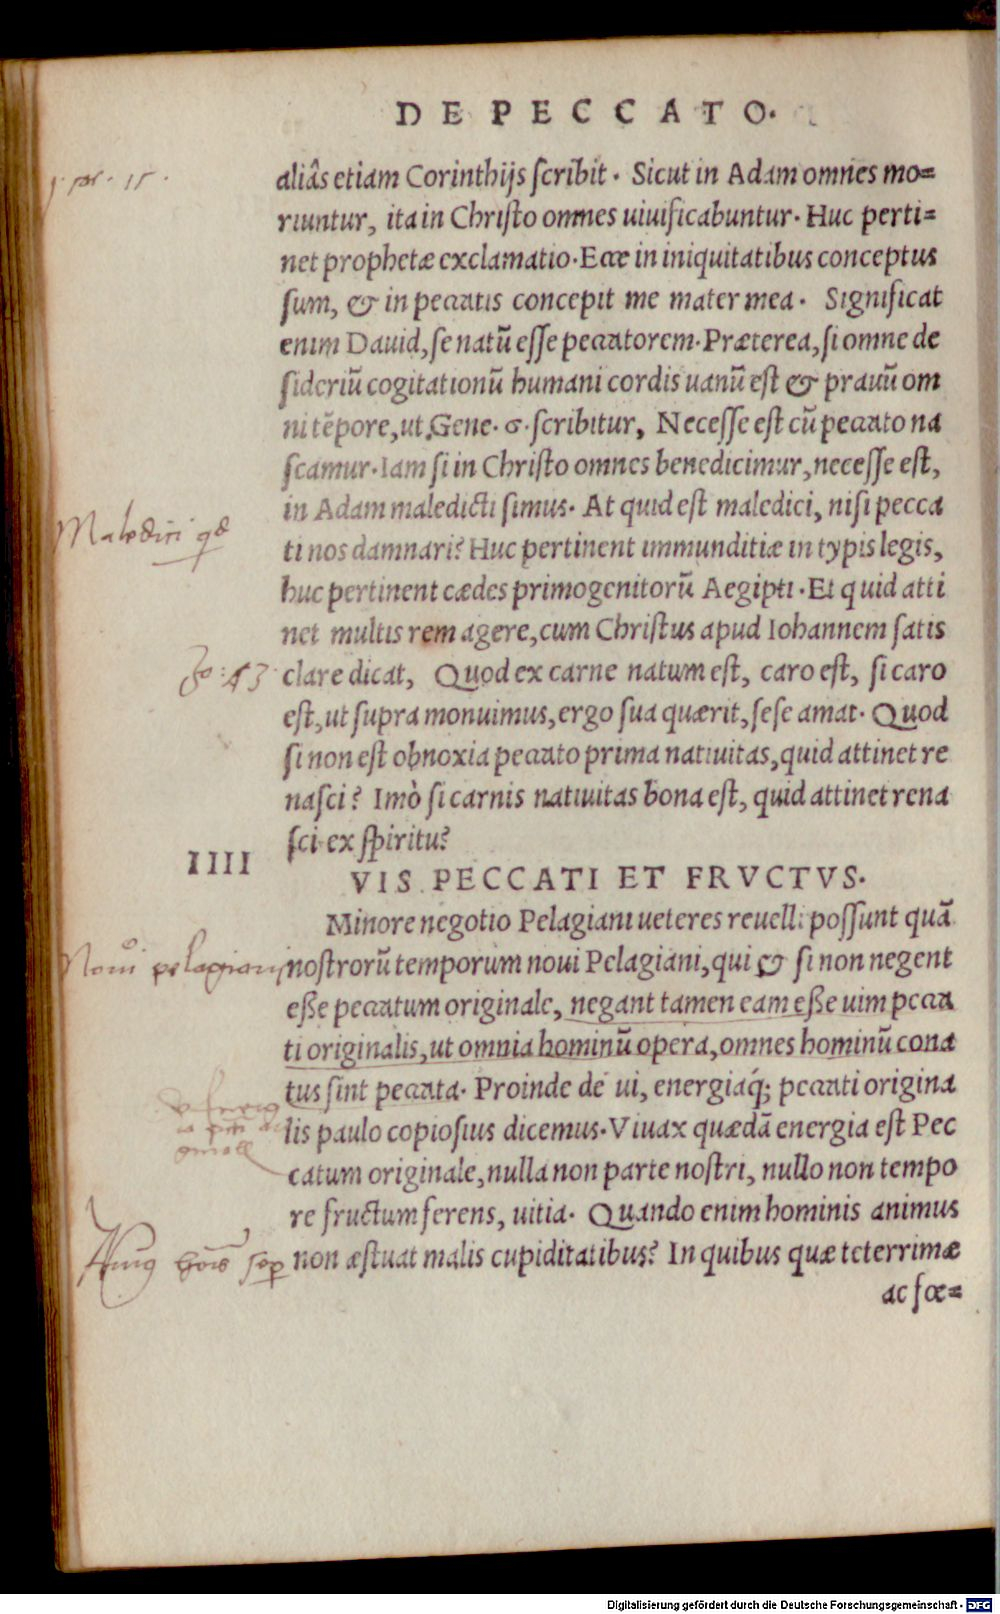 DE PECCATO.
aliâs etiam Corinthijs scribit. Sicut in Adam omnes mo=
riuntur, ita in Christo omnes uiuificabuntur. Huc perti=
net prophetæ exclamatio. Ecce in iniquitatibus conceptus
sum, & in peccatis concepit me mater mea. Significat
enim Dauid, se natũ esse peccatorem. Præterea, si omne de
sideriũ cogitationũ humani cordis uanũ est & prauũ om
ni tẽpore, ut Gene. 6. scribitur, Necesse est cũ peccato na
scamur. Iam si in Christo omnes benedicimur, necesse est,
in Adam maledicti simus. At quid est maledici, nisi pecca
Maledici qd
ti nos damnari? Huc pertinent immunditiæ in typis legis,
huc pertinent cædes primogenitorũ Aegipti. Et quid atti
net multis rem agere, cum Christus apud Iohannem satis
clare dicat, Quod ex carne natum est, caro est, si caro
est, ut supra monuimus, ergo sua quærit, sese amat. Quod
si non est obnoxia peccato prima natiuitas, quid attinet re
nasci? Imò si carnis natiuitas bona est, quid attinet rena
sci ex spiritu?
IIII
VIS PECCATI ET FRVCTVS.
Minore negotio Pelagiani ueteres reuelli possunt quã
Noui pelagiani
nostrorũ temporum noui Pelagiani, qui & si non negent
esse peccatum originale, negant tamen eam esse uim pecca
ti originalis, ut omnia hominũ opera, omnes hominũ cona
tus sint peccata. Proinde de ui, energiaq́; peccati origina
lis paulo copiosius dicemus. Viuax quædã energia est Pec
catum originale, nulla non parte nostri, nullo non tempo
re fructum ferens, uitia. Quando enim hominis animus
non æstuat malis cupiditatibus? In quibus quæ teterrimæ
ac fœ=
Digitalisierung gefördert durch die Deutsche Forschungsgemeinschaft - DFG